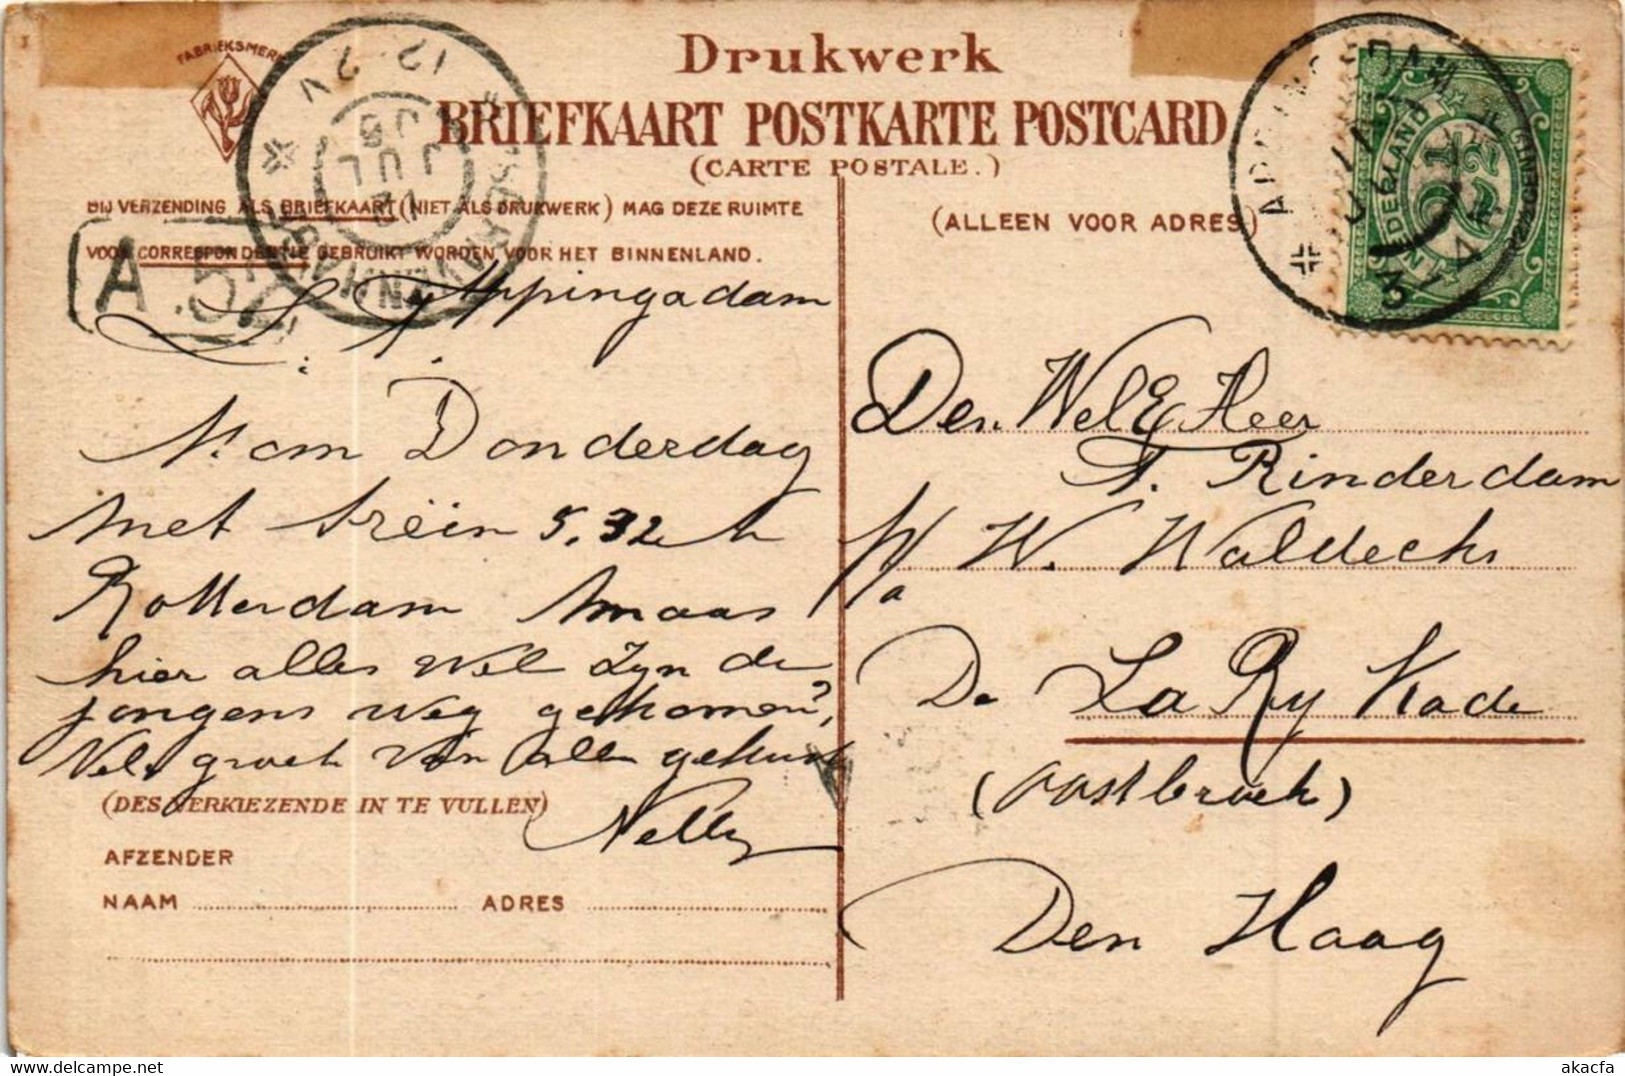 FABRIEKSMERK
Drukwerk
BRIEFKAART POSTKARTE POSTCARD
(CARTE POSTALE.)
BIJ VERZENDING ALS BRIEFKAART (NIET ALS DRUKWERK) MAG DEZE RUIMTE
VOOR CORRESPONDENTIE GEBRUIKT WORDEN VOOR HET BINNENLAND.
(ALLEEN VOOR ADRES)
'S GRAVENHAGE
12 JUL 08
12-2V
A 52
APPINGEDAM
NEDERLAND
2½
Appingadam
Kom Donderdag
met trëin 5.32
Rotterdam Maas
hier alles wel zyn de
jongens weg gekomen?,
Vele groet van allen gekust
Nelly
Den Wel E Heer
F. Rinderdam
p/a W. Waldeck
De La Ry Kade
(Oostbroek)
Den Haag
(DES VERKIEZENDE IN TE VULLEN)
AFZENDER
NAAM ADRES
akacfa